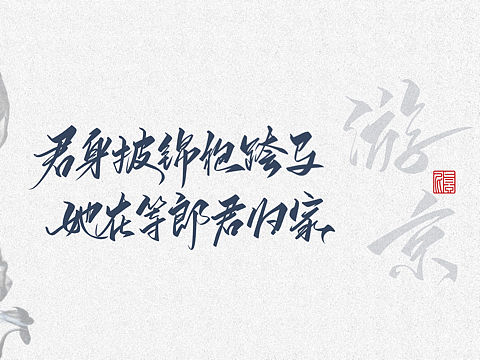 君身披锦袍跨马
她在等郎君归家
游京